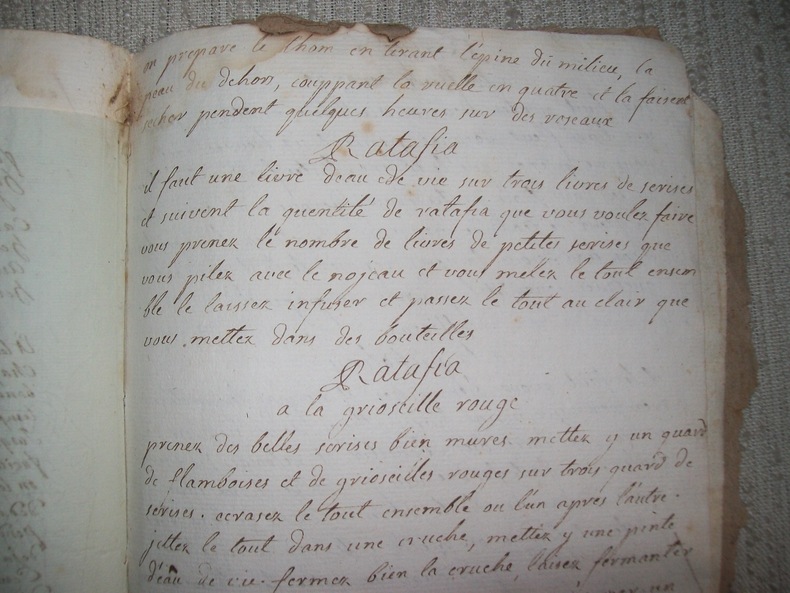 on prepare le thom en tirant l'epine du milieu, la
peau du dehors, couppant la ruelle en quatre et la faisent
secher pendent quelques heures sur des roseaux
Ratafia
il faut une livre deau de vie sur trois livres de serises
et suivent la quentité de ratafia que vous voulez faire
vous prenez le nombre de livres de petites serises que
vous pilez avec le nojeau et vous melez le tout ensem
ble le laissez infuser et passez le tout au clair que
vous mettez dans des bouteilles
Ratafia
a la grioseille rouge
prenez des belles serises bien mures mettez y un quard
de flamboises et de grioseilles rouges sur trois quard de
serises. ecrasez le tout ensemble ou l'un apres l'autre.
jettez le tout dans une cruche, mettez y une pinte
d'eau de vie. fermez bien la cruche, laisez fermanter
un